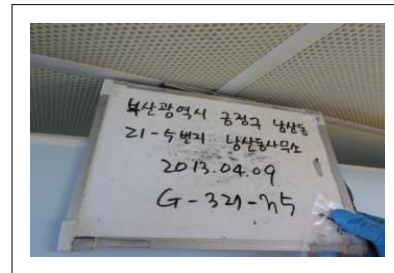 부산광역시 금정구 남산동
21-4번지 남산동사무소
2013.04.09